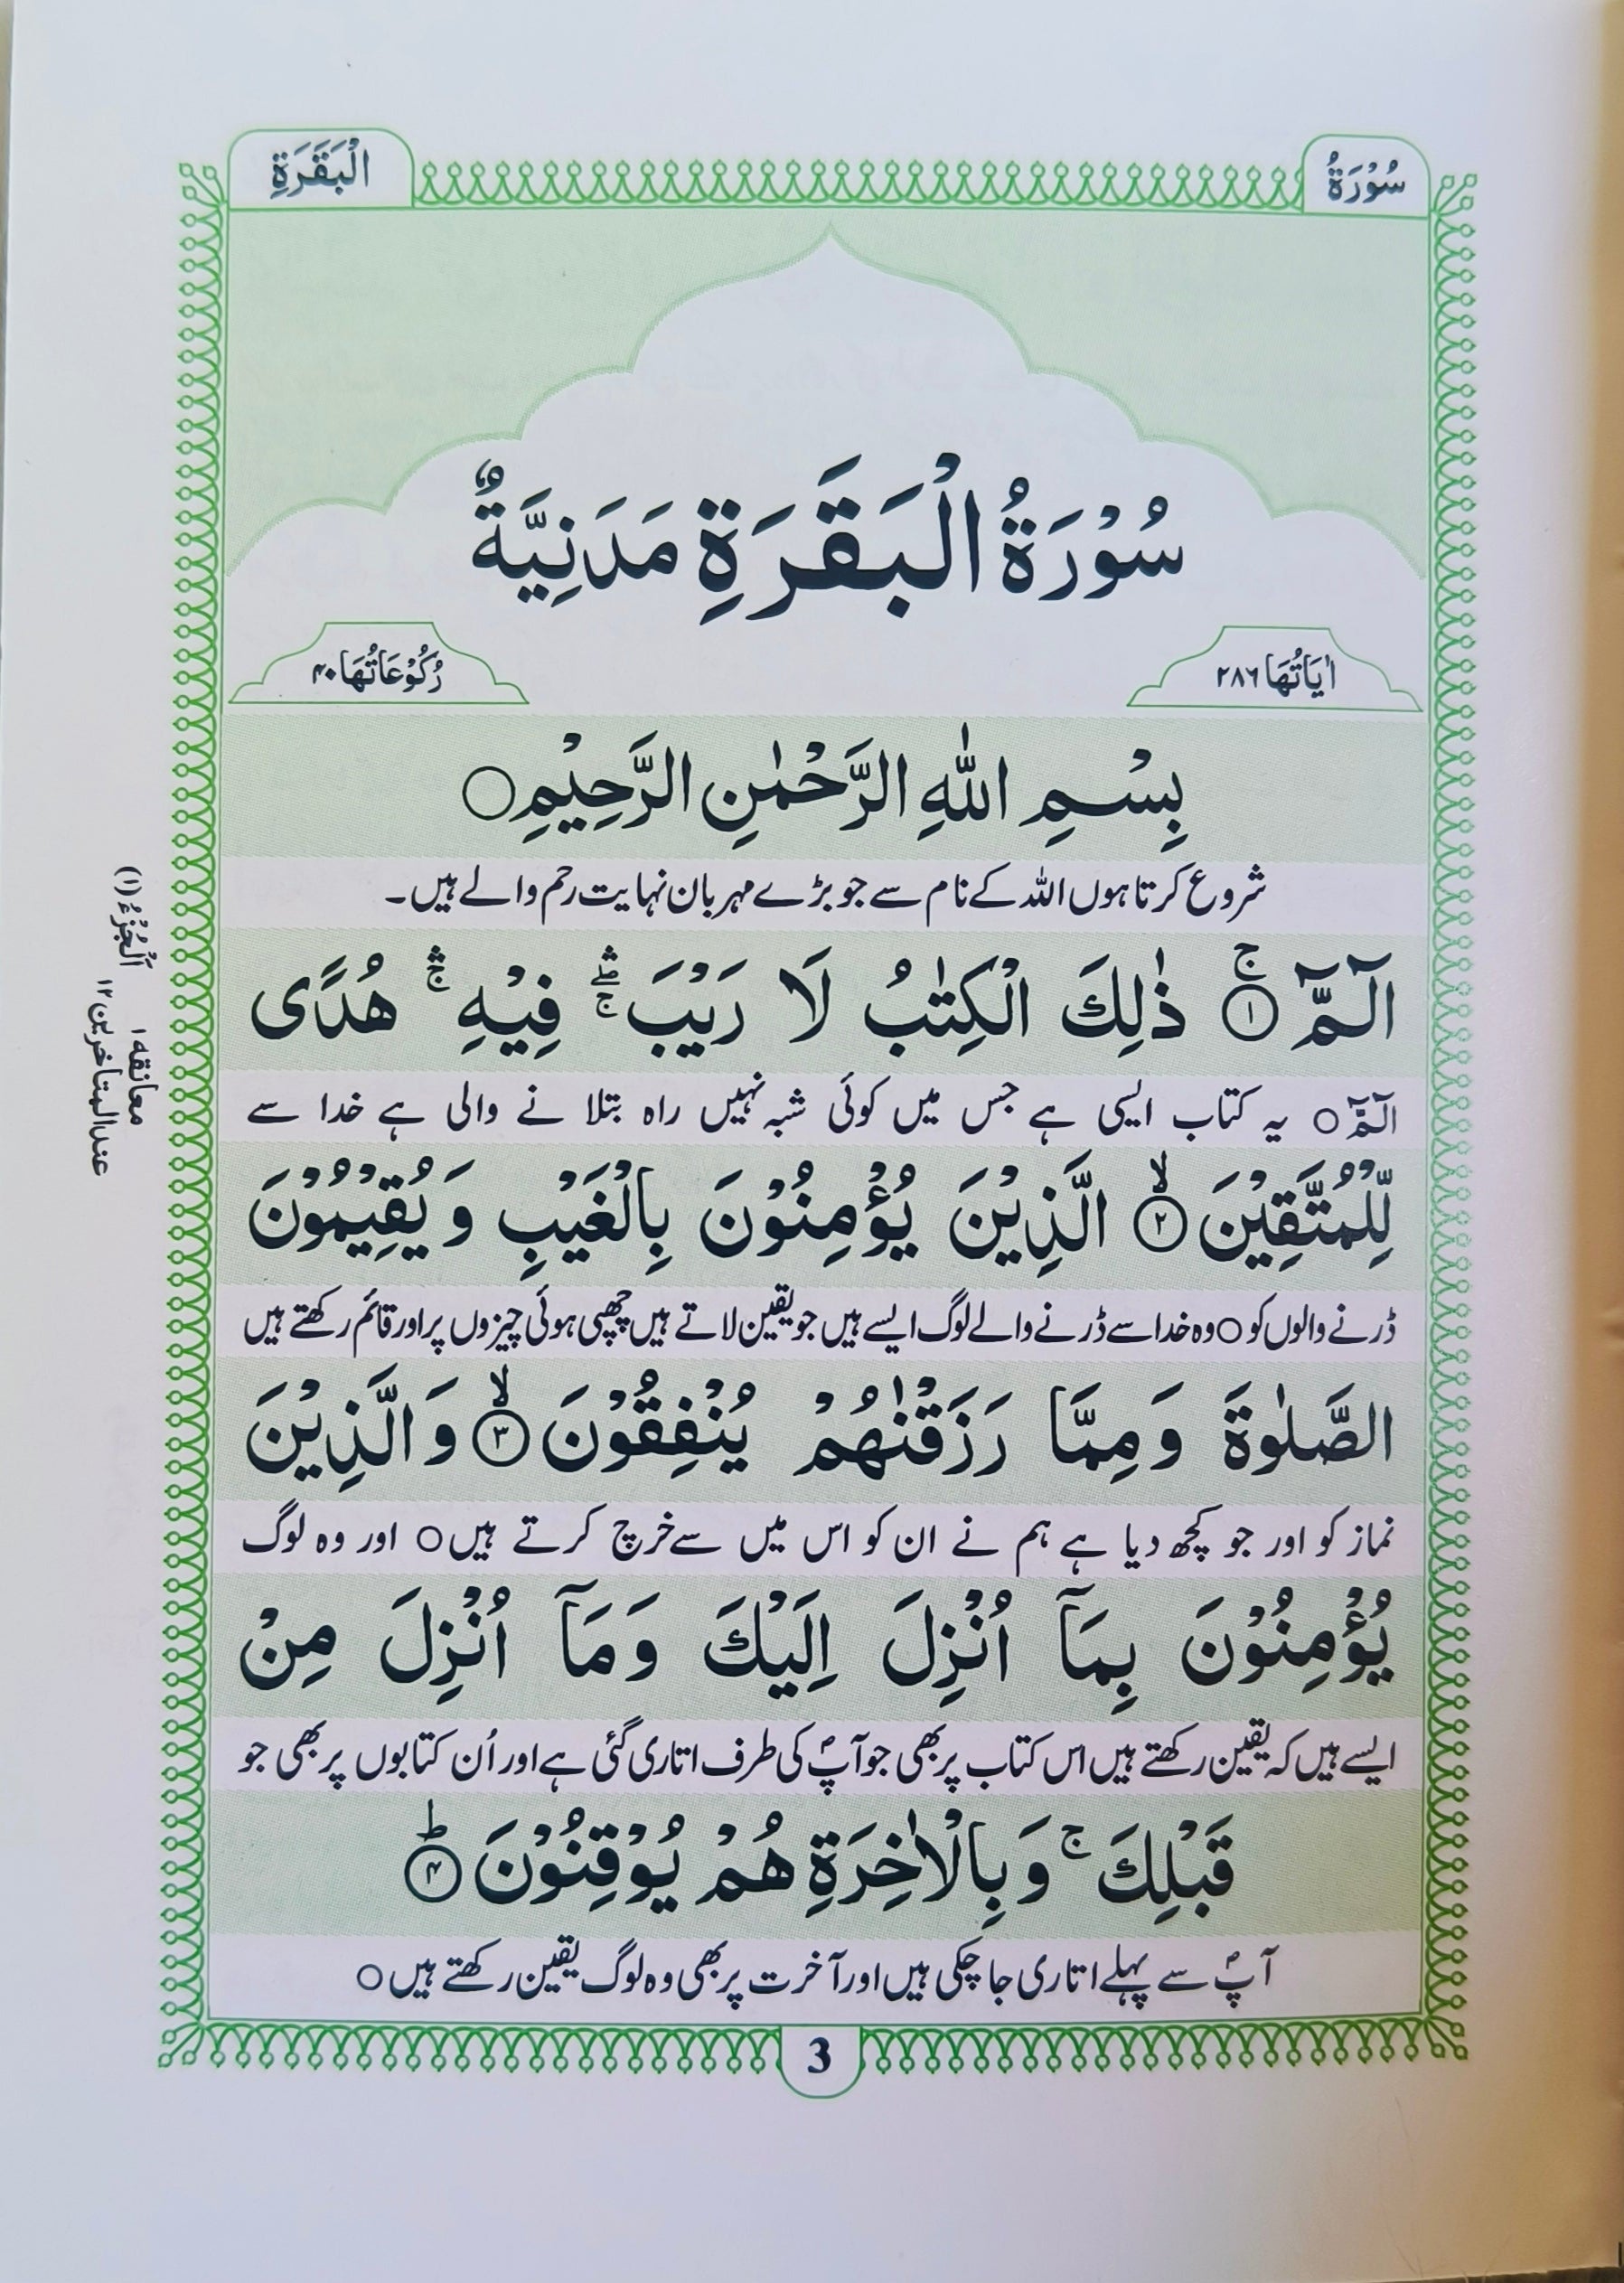 سُوْرَةُ
الْبَقَرَةِ
سُوْرَةُ الْبَقَرَةِ مَدَنِيَّةٌ
اٰيَاتُهَا ۲۸۶
رُكُوْعَاتُهَا ۴۰
بِسْمِ اللّٰهِ الرَّحْمٰنِ الرَّحِيْمِ○
شروع کرتا ہوں اللہ کے نام سے جو بڑے مہربان نہایت رحم والے ہیں۔
الٓمّٓ ۚ‏﴿۱﴾ ذٰلِكَ الْكِتٰبُ لَا رَيْبَ ۛۖۚ فِيْهِ ۛۚ هُدًى
الٓمّٓ○ یہ کتاب ایسی ہے جس میں کوئی شبہ نہیں راہ بتلا نے والی ہے خدا سے
لِّلْمُتَّقِيْنَ ۙ﴿۲﴾ الَّذِيْنَ يُؤْمِنُوْنَ بِالْغَيْبِ وَ يُقِيْمُوْنَ
ڈرنے والوں کو○ وہ خدا سے ڈرنے والے لوگ ایسے ہیں جو یقین لاتے ہیں چھپی ہوئی چیزوں پر اور قائم رکھتے ہیں
الصَّلٰوةَ وَ مِمَّا رَزَقْنٰهُمْ يُنْفِقُوْنَ ۙ﴿۳﴾ وَ الَّذِيْنَ
نماز کو اور جو کچھ دیا ہے ہم نے ان کو اس میں سے خرچ کرتے ہیں○ اور وہ لوگ
يُؤْمِنُوْنَ بِمَآ اُنْزِلَ اِلَيْكَ وَ مَآ اُنْزِلَ مِنْ
ایسے ہیں کہ یقین رکھتے ہیں اس کتاب پر بھی جو آپؐ کی طرف اتاری گئی ہے اور اُن کتابوں پر بھی جو
قَبْلِكَ ۚ وَ بِالْاٰخِرَةِ هُمْ يُوْقِنُوْنَ ؕ﴿۴﴾
آپؐ سے پہلے اتاری جا چکی ہیں اور آخرت پر بھی وہ لوگ یقین رکھتے ہیں○
اَلْجُزْءُ (۱)
معانقه ۱
عند المتاخرين ۱۲
3